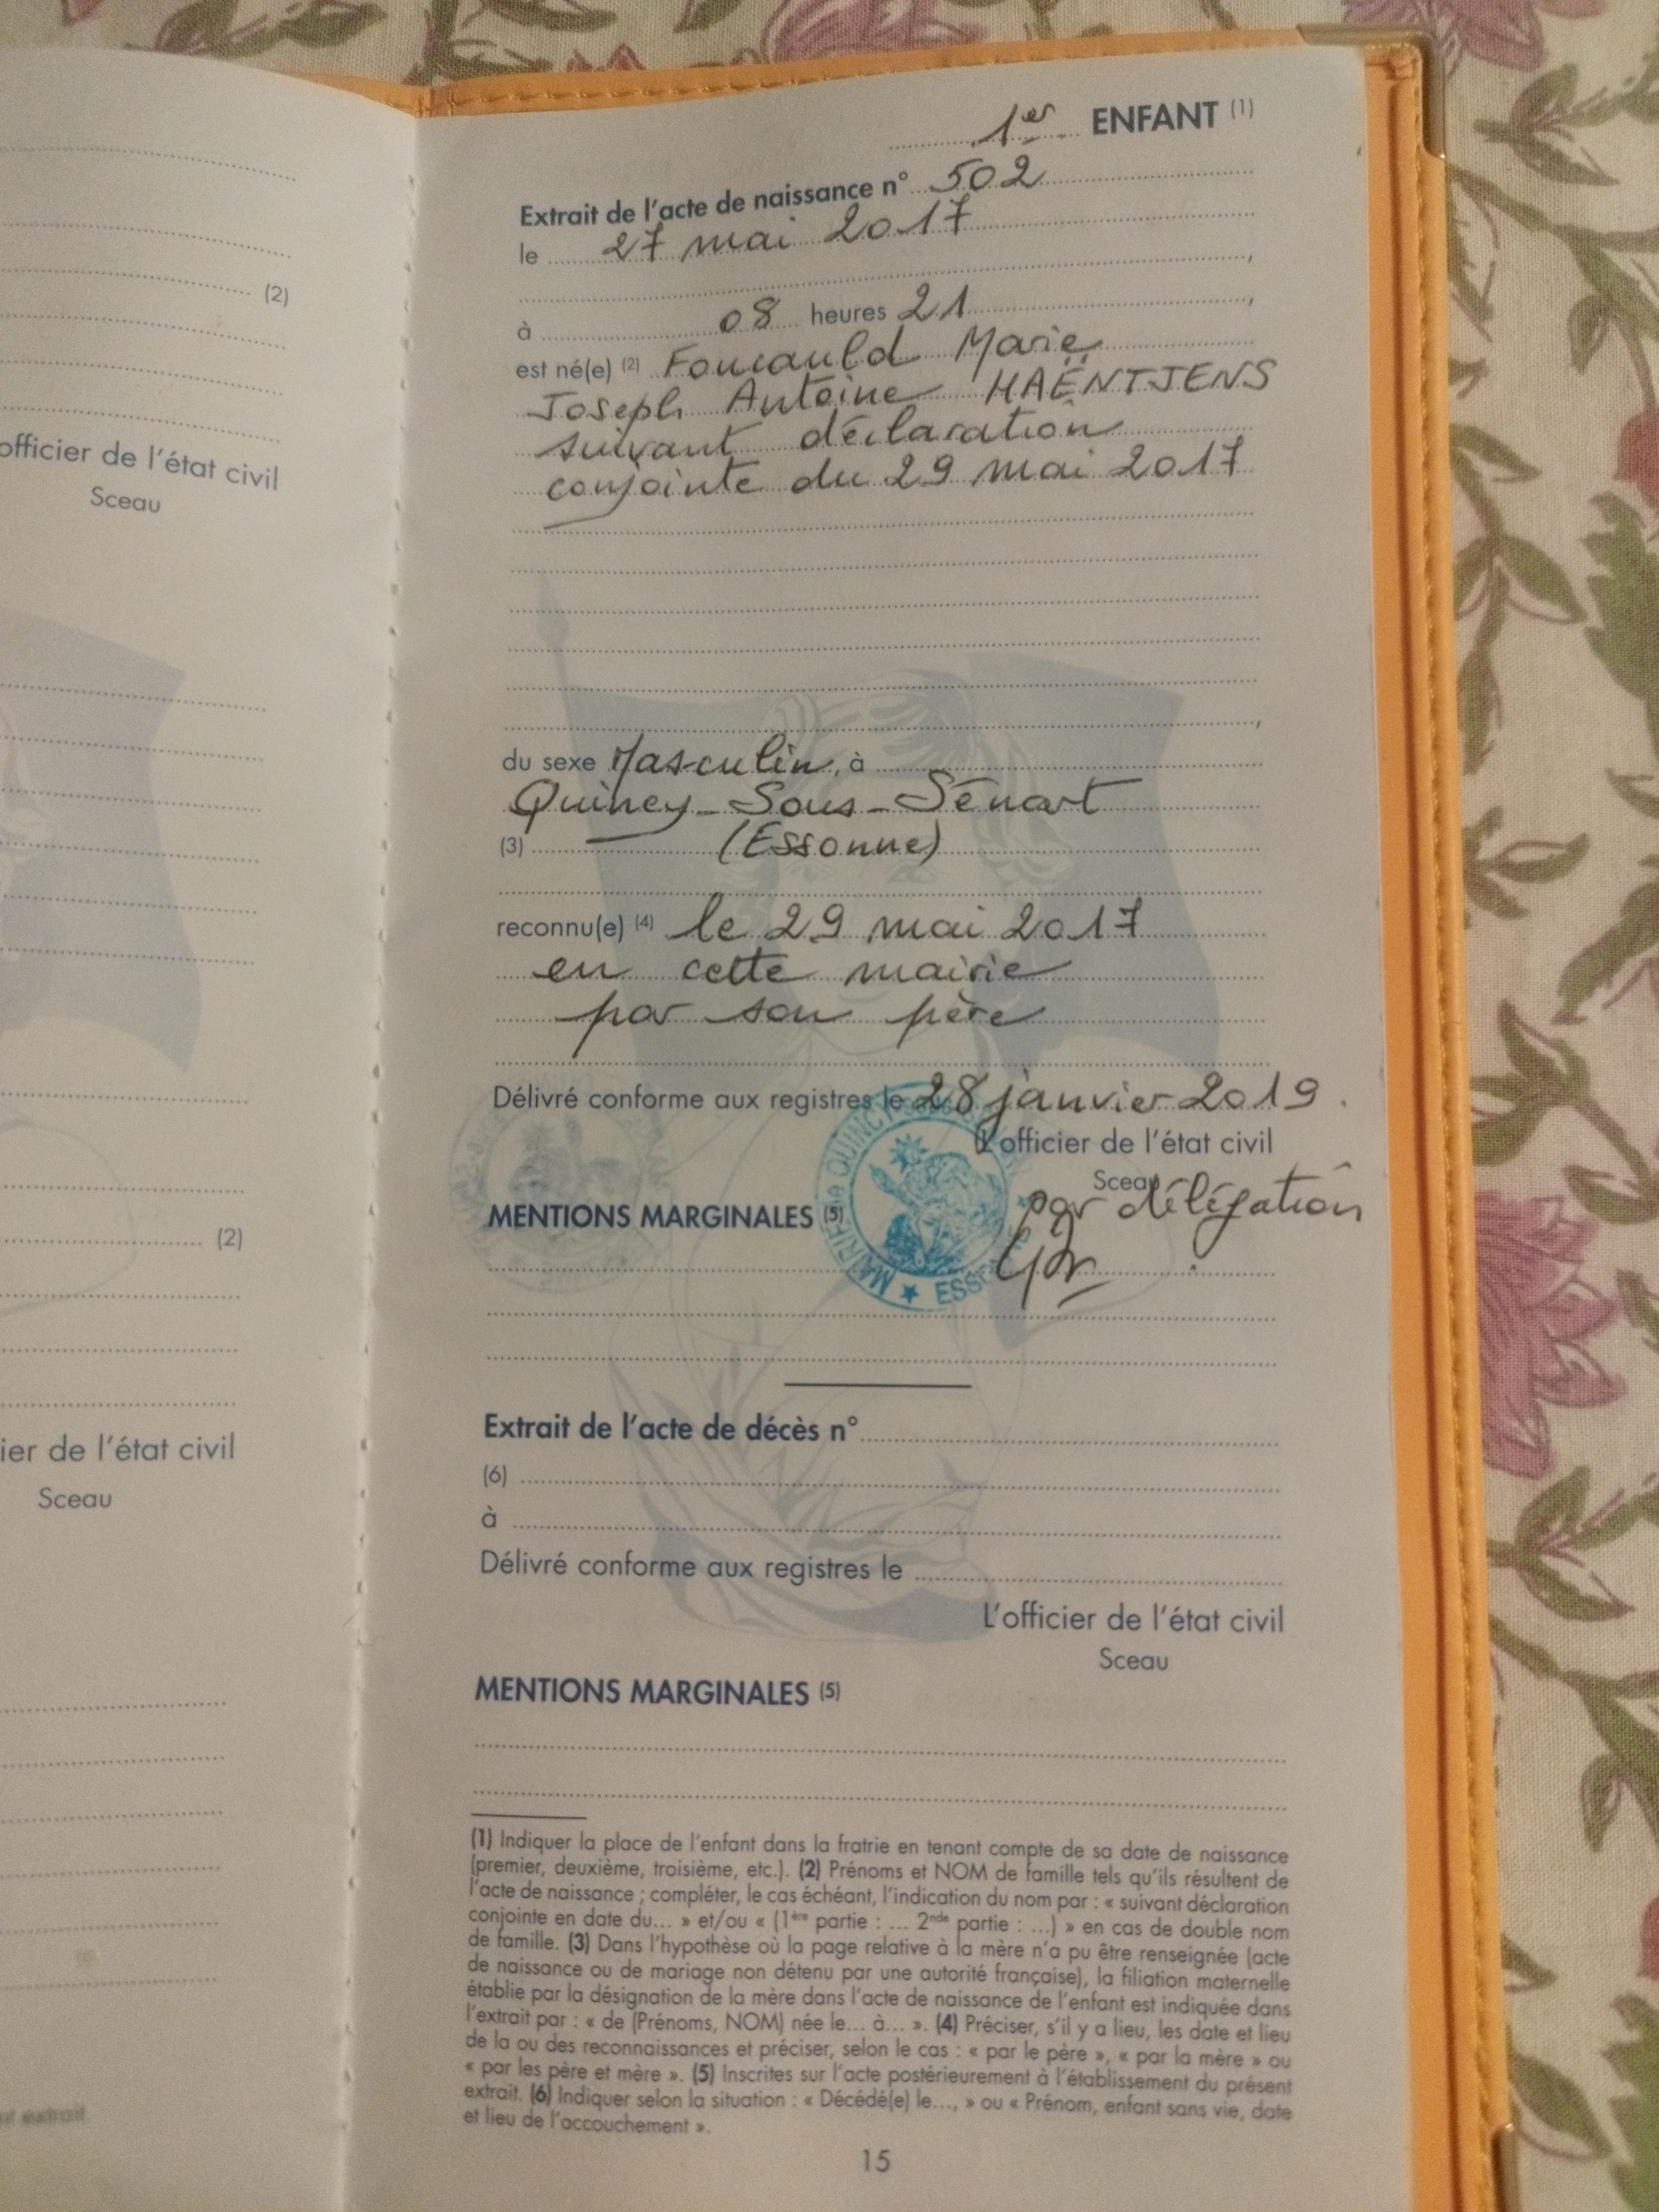 (2)
officier de l'état civil
Sceau
(2)
ier de l'état civil
Sceau
nt extrait
1er ENFANT (1)
Extrait de l'acte de naissance n° 502
le 27 mai 2017
,
à 08 heures 21,
est né(e) (2) Foucauld Marie
Joseph Antoine HAËNTJENS
suivant déclaration
conjointe du 29 mai 2017
,
du sexe Masculin, à
Quincy-Sous-Sénart
(3) (Essonne)
reconnu(e) (4) le 29 mai 2017
en cette mairie
par son père
Délivré conforme aux registres le 28 janvier 2019.
L'officier de l'état civil
Sceau
par délégation
MENTIONS MARGINALES (5)
MAIRIE de QUINCY
★ ESS
Extrait de l'acte de décès n°
(6)
à
Délivré conforme aux registres le
L'officier de l'état civil
Sceau
MENTIONS MARGINALES (5)
(1) Indiquer la place de l'enfant dans la fratrie en tenant compte de sa date de naissance
(premier, deuxième, troisième, etc.). (2) Prénoms et NOM de famille tels qu'ils résultent de
l'acte de naissance ; compléter, le cas échéant, l'indication du nom par : « suivant déclaration
conjointe en date du... » et/ou « (1ère partie : ... 2nde partie : ...) » en cas de double nom
de famille. (3) Dans l'hypothèse où la page relative à la mère n'a pu être renseignée (acte
de naissance ou de mariage non détenu par une autorité française), la filiation maternelle
établie par la désignation de la mère dans l'acte de naissance de l'enfant est indiquée dans
l'extrait par : « de (Prénoms, NOM) née le... à... ». (4) Préciser, s'il y a lieu, les date et lieu
de la ou des reconnaissances et préciser, selon le cas : « par le père », « par la mère » ou
« par les père et mère ». (5) Inscrites sur l'acte postérieurement à l'établissement du présent
extrait. (6) Indiquer selon la situation : « Décédé(e) le..., » ou « Prénom, enfant sans vie, date
et lieu de l'accouchement ».
15